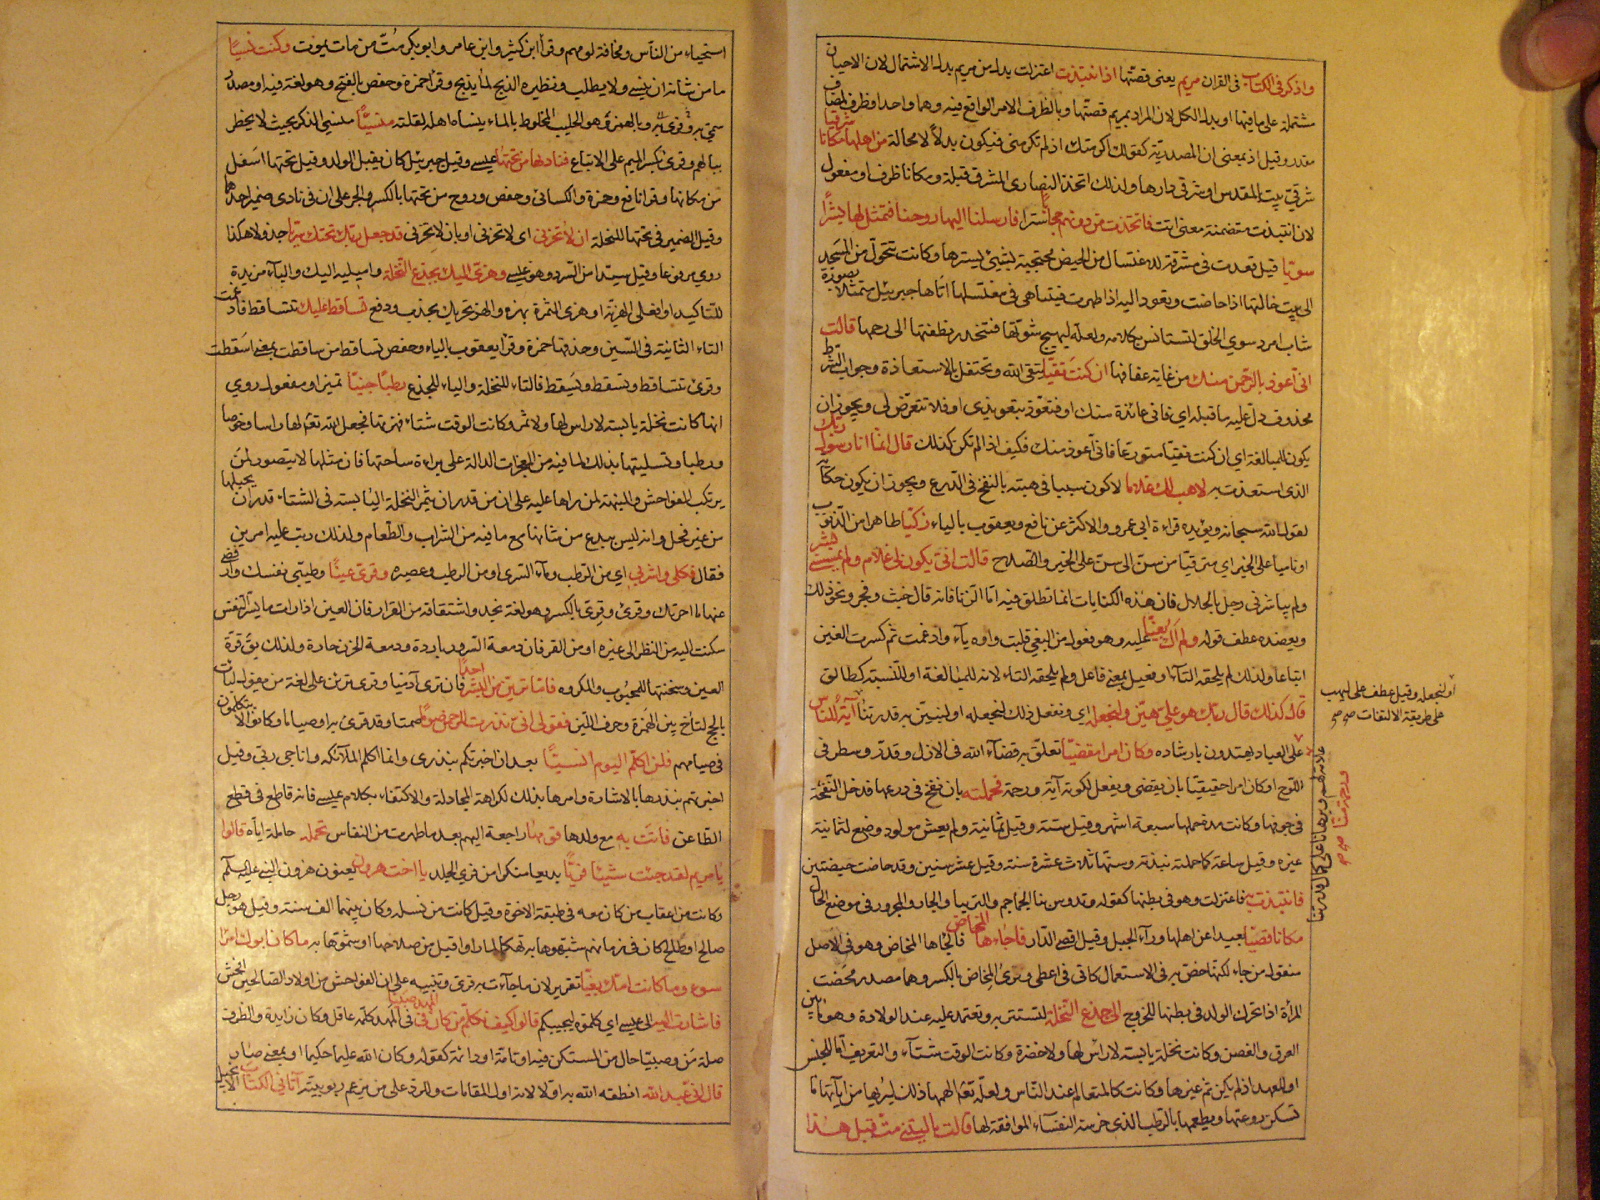 واذكر في الكتاب في القران مريم يعني قصتها اذ انتبذت اعتزلت بدل من مريم بدل الاشتمال لان الاحيان
مشتملة على ما فيها او بدل الكل لان المراد بمريم قصتها وبالظرف الامر الواقع فيه وهما واحد او ظرف لمضاف
مقدر وقيل اذ بمعنى ان المصدرية كقولك اكرمتك اذ لم تكرمني فيكون بدلا لا محالة من اهلها مكانا شرقيا
شرقي بيت المقدس او شرقي دارها ولذلك اتخذ النصارى المشرق قبلة ومكانا ظرف او مفعول
لان انتبذت متضمنة معنى اتت فاتخذت من دونهم حجابا سترا فارسلنا اليها روحنا فتمثل لها بشرا
سويا قيل قعدت في مشرقة للاغتسال من الحيض محتجبة بشيء يسترها وكانت تتحول من المسجد
الى بيت خالتها اذا حاضت وتعود اليه اذا طهرت فبينما هي في مغتسلها اتاها جبريل متمثلا بصورة
شاب امرد سوي الخلق لتستانس بكلامه ولعله ليهيج شهوتها فتنحدر نطفتها الى رحمها قالت
اني اعوذ بالرحمن منك من غاية عفافها ان كنت تقيا تتقي الله وتحتفل بالاستعاذة وجواب الشرط
محذوف دل عليه ما قبله اي فاني عائذة منك او فتتعوذ بتعويذي او فلا تتعرض لي ويجوز ان
يكون للمبالغة اي ان كنت تقيا متورعا فاني اعوذ منك فكيف اذا لم تكن كذلك قال انما انا رسول ربك
الذي استعذت به لاهب لك غلاما لاكون سببا في هبته بالنفخ في الدرع ويجوز ان يكون حكاية
لقول الله سبحانه ويؤيده قراءة ابي عمرو والاكثر عن نافع ويعقوب بالياء زكيا طاهرا من الذنوب
او ناميا على الخير اي مترقيا من سن الى سن على الخير والصلاح قالت انى يكون لي غلام ولم يمسسني بشر
ولم يباشرني رجل بالحلال فان هذه الكنايات انما تطلق فيه اما الزنا فانه يقال خبث وفجر ونحو ذلك
ويعضده عطف قوله ولم اك بغيا عليه وهو فعول من البغي قلبت واوه ياء وادغمت ثم كسرت الغين
اتباعا ولذلك لم يلحقه التاء او فعيل بمعنى فاعل ولم يلحقه التاء لانه للمبالغة او للنسبة كطالق
قال كذلك قال ربك هو علي هين ولنجعله اي ونفعل ذلك لنجعله او لنبين به قدرتنا آية للناس
على العباد يهتدون بارشاده وكان امرا مقضيا تعلق به قضاء الله في الازل او قدر وسطر في
اللوح او كان امرا حقيقيا بان يقضى ويفعل لكونه آية ورحمة فحملته بان نفخ في درعها فدخل النفخة
في جوفها وكانت مدة حملها سبعة اشهر وقيل ستة وقيل ثمانية ولم يعش مولود وضع لثمانية
غيره وقيل ساعة كما حملته نبذته وسنها ثلاث عشرة سنة وقيل عشر سنين وقد حاضت حيضتين
فانتبذت به فاعتزلت وهو في بطنها كقوله تدوس بنا الجماجم والتريبا والجار والمجرور في موضع الحال
مكانا قصيا بعيدا عن اهلها وراء الجبل وقيل اقصى الدار فاجاءها المخاض فالجأها المخاض وهو في الاصل
منقول من جاء لكنه خص به في الاستعمال كاتى في اعطى وقرئ المخاض بالكسر وهما مصدر مخضت
المرأة اذا تحرك الولد في بطنها للخروج الى جذع النخلة لتستتر به وتعتمد عليه عند الولادة وهو ما بين
العرق والغصن وكانت نخلة يابسة لا راس لها ولا خضرة وكانت الوقت شتاء والتعريف اما للجنس
او للعهد اذ لم يكن ثم غيرها وكانت كالمتعالم عند الناس ولعله تعالى الهمها ذلك ليريها من اياتها ما
تسكن روعتها ويطعمها بالرطب الذي خرسة النفساء الموافقة لها قالت يا ليتني مت قبل هذا
او لنجعله وقيل عطف على ليهب
على طريقة الالتفات صح صح
ورحمة منا صح
استحياء من الناس ومخافة لومهم وقرأ ابن كثير وابن عامر وابو بكر مت من مات يموت وكنت نسيا
ما من شانه ان ينسى ولا يطلب ونظيره الذبح لما يذبح وقرأ حمزة وحفص بالفتح وهو لغة فيه او مصدر
سمي به وقرئ به وبالهمزة وهو الحليب المخلوط بالماء ينساه اهله لقلته منسيا منسي الذكر بحيث لا يخطر
ببالهم وقرئ بكسر الميم على الاتباع فناداها من تحتها عيسى وقيل جبريل كان يقبل الولد وقيل تحتها اسفل
من مكانها وقرأ نافع وحمزة والكسائي وحفص وروح من تحتها بالكسر والجر على ان في نادى ضمير احدهما
وقيل الضمير في تحتها للنخلة ان لا تحزني اي لا تحزني او بان لا تحزني قد جعل ربك تحتك سريا جدولا هكذا
روي مرفوعا وقيل سيدا من السرو وهو عيسى وهزي اليك بجذع النخلة واميليه اليك والباء مزيدة
للتاكيد او افعلي الهز به او هزي الثمرة بهزه والهز تحريك بجذب ودفع تساقط عليك تتساقط فادغمت
التاء الثانية في السين وحذفتها حمزة وقرأ يعقوب بالياء وحفص تساقط من ساقطت بمعنى اسقطت
وقرئ تتساقط وتسقط ويسقط فالتاء للنخلة والياء للجذع رطبا جنيا تمييز او مفعول روي
انها كانت نخلة يابسة لا راس لها ولا ثمر وكانت الوقت شتاء فهزتها فجعل الله تعالى لها راسا وخوصا
ورطبا وتسليتها بذلك لما فيه من المعجزات الدالة على براءة ساحتها فان مثلها لا يتصور لمن
يرتكب الفواحش والمنبهة لمن راها عليه على ان من قدر ان يثمر النخلة اليابسة في الشتاء قدر ان يحبلها
من غير فحل وانه ليس ببدع من شانها مع ما فيه من الشراب والطعام ولذلك رتب عليه امرين
فقال فكلي واشربي اي من الرطب وماء السري او من الرطب وعصيره وقري عينا وطيبي نفسك وارفضي
عنها ما احزنك وقرئ وقري بالكسر وهو لغة نجد واشتقاقه من القرار فان العين اذا رات ما يسر النفس
سكنت اليه من النظر الى غيره او من القر فان دمعة السرور باردة ودمعة الحزن حارة ولذلك يق قرة
العين وسخنتها للمحبوب والمكروه فاما ترين من البشر احدا فان تري آدميا وقرئ ترئن على لغة من يقول لبأت
بالحج لتآخ بين الهمزة وحرف اللين فقولي اني نذرت للرحمن صوما صمتا وقد قرئ به او صياما وكانوا لا يتكلمون
في صيامهم فلن اكلم اليوم انسيا بعد ان اخبرتكم بنذري وانما اكلم الملائكة واناجي ربي وقيل
اخبرتهم بنذرها بالاشارة وامرها بذلك لكراهة المجادلة والاكتفاء بكلام عيسى فانه قاطع في قطع
الطاعن فاتت به مع ولدها قومها راجعة اليهم بعد ما طهرت من النفاس تحمله حاملة اياه قالوا
يا مريم لقد جئت شيئا فريا بديعا منكرا من فري الجلد يا اخت هرون يعنون هرون النبي عليه السلم
وكانت من اعقاب من كان معه في طبقة الاخوة وقيل كانت من نسله وكان بينهما الف سنة وقيل هو رجل
صالح او طالح كان في زمانهم شبهوها به تهكما او لما راوا قبل من صلاحها او شتموها به ما كان ابوك امرا
سوء وما كانت امك بغيا تقرير لان ما جاءت به فري وتنبيه على ان الفواحش من اولاد الصالحين افحش
فاشارت اليه الى عيسى اي كلموه ليجيبكم قالوا كيف نكلم من كان في المهد صبيا في المهد كلمه عاقل وكان زايدة والظرف
صلة من وصبيا حال من المستكن فيه او تامة او دائمة كقوله وكان الله عليما حكيما او بمعنى صار
قال اني عبد الله انطقه الله به اولا لانه اول المقامات والرد على من يزعم ربوبيته آتاني الكتاب الانجيل